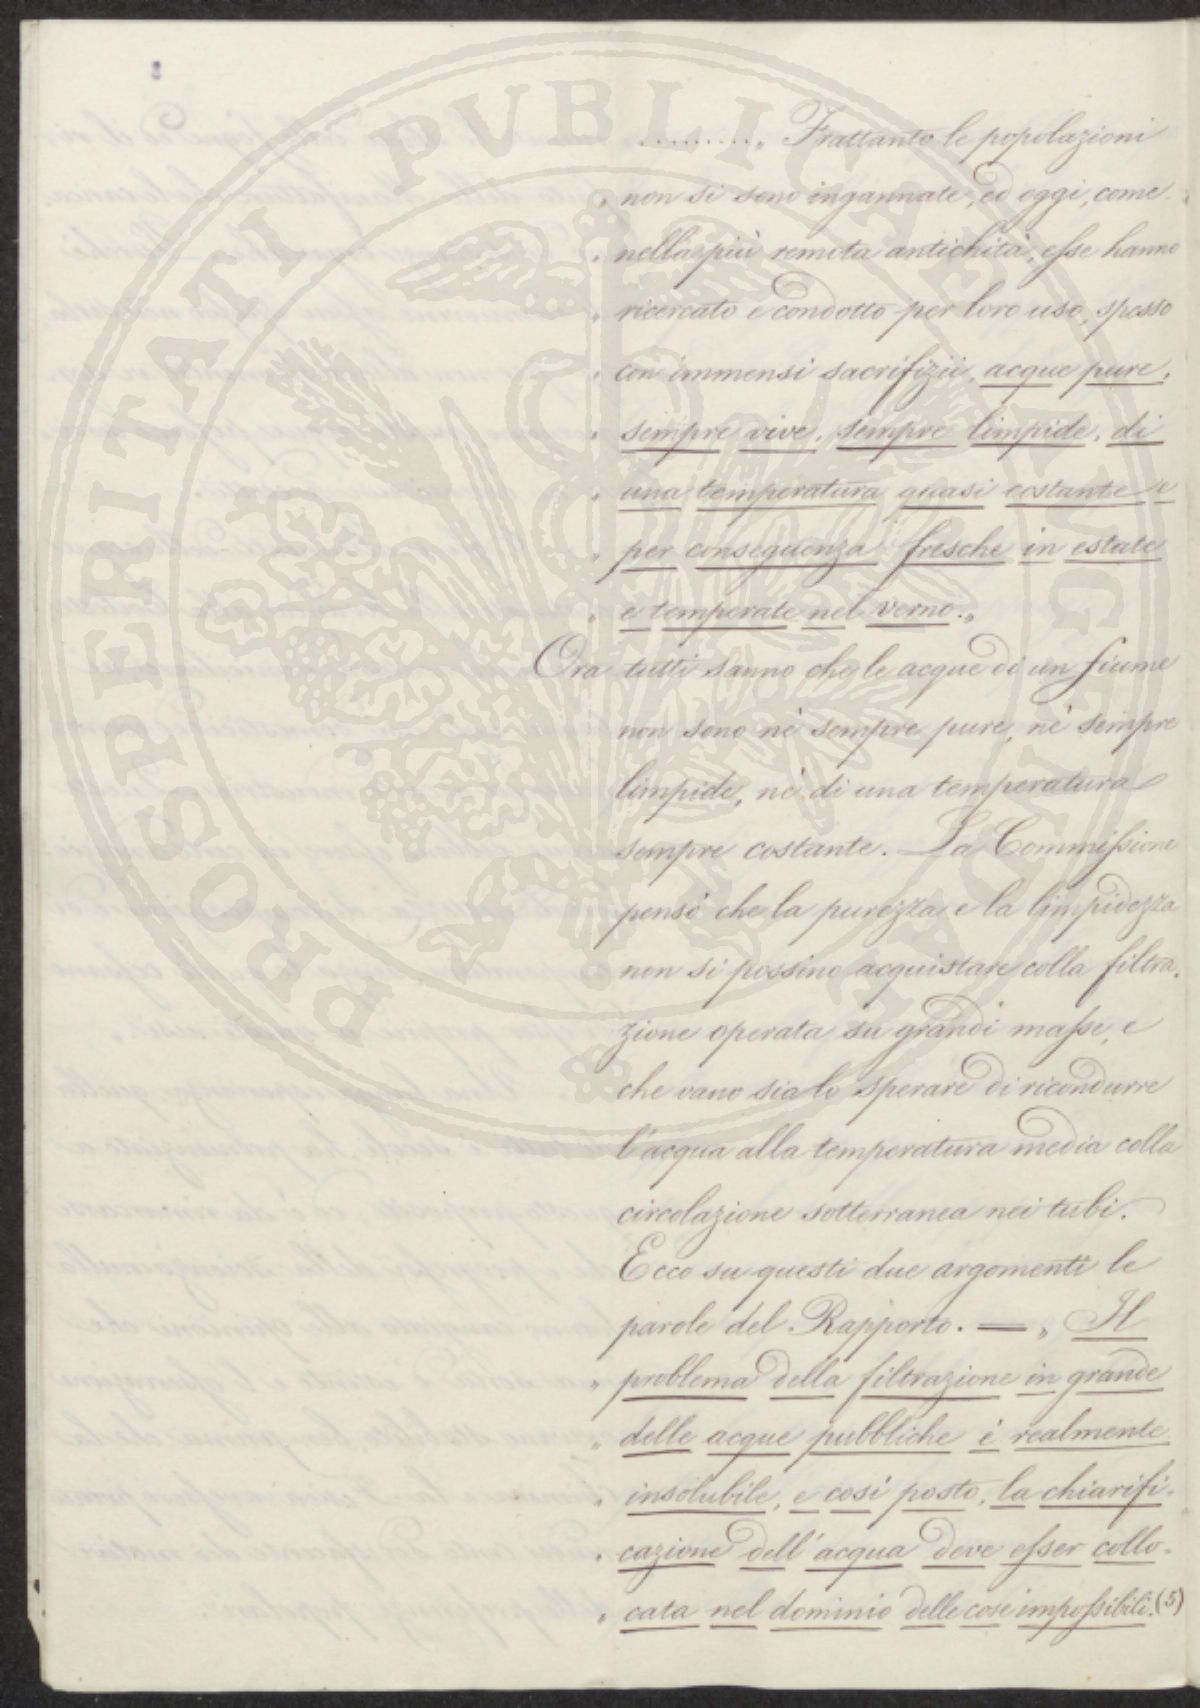 PROSPERITATI PVBLICAE AVGENDAE
.......... „ Frattanto le popolazioni
„ non si sono ingannate, ed oggi, come
„ nella più remota antichità, esse hanno
„ ricercato e condotto per loro uso, spesso
„ con immensi sacrifizii, acque pure,
„ sempre vive, sempre limpide, di
„ una temperatura quasi costante e
„ per conseguenza fresche in estate
„ e temperate nel verno. „
Ora tutti sanno che le acque di un fiume
non sono nè sempre pure, nè sempre
limpide, nè di una temperatura
sempre costante. La Commissione
pensò che la purezza e la limpidezza
non si possino acquistare colla filtra-
zione operata su grandi masse, e
che vano sia lo sperare di ricondurre
l'acqua alla temperatura media colla
circolazione sotterranea nei tubi.
Ecco su questi due argomenti le
parole del Rapporto. — „ Il
„ problema della filtrazione in grande
„ delle acque pubbliche è realmente
„ insolubile, e così posto, la chiarifi-
„ cazione dell'acqua deve esser collo-
„ cata nel dominio delle cose impossibili. (5)